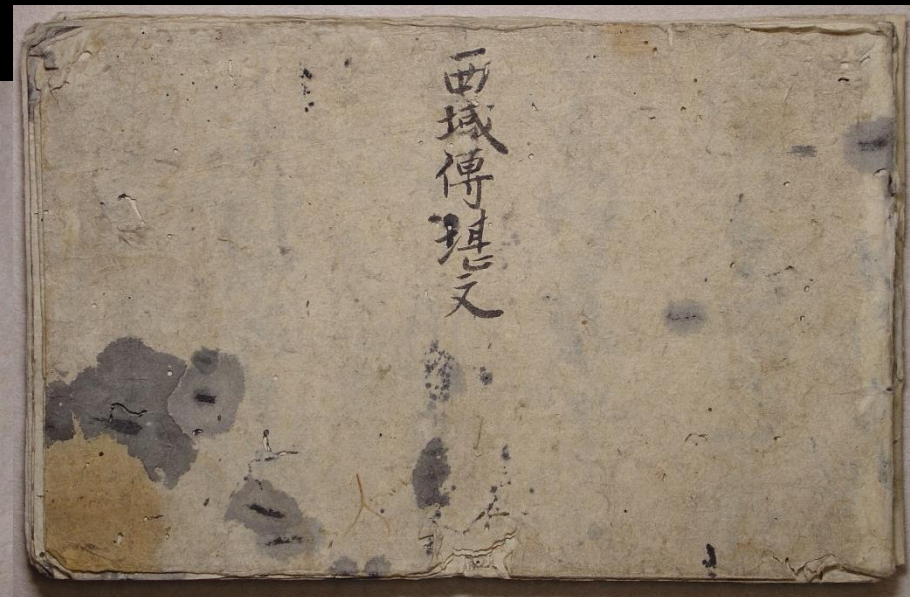 西域傳堪文